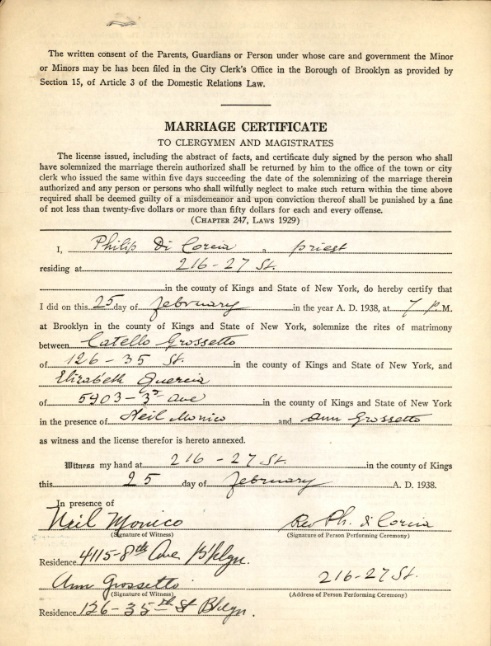 The written consent of the Parents, Guardians or Person under whose care and government the Minor
or Minors may be has been filed in the City Clerk's Office in the Borough of Brooklyn as provided by
Section 15, of Article 3 of the Domestic Relations Law.
MARRIAGE CERTIFICATE
TO CLERGYMEN AND MAGISTRATES
The license issued, including the abstract of facts, and certificate duly signed by the person who shall
have solemnized the marriage therein authorized shall be returned by him to the office of the town or city
clerk who issued the same within five days succeeding the date of the solemnizing of the marriage therein
authorized and any person or persons who shall wilfully neglect to make such return within the time above
required shall be deemed guilty of a misdemeanor and upon conviction thereof shall be punished by a fine
of not less than twenty-five dollars or more than fifty dollars for each and every offense.
(CHAPTER 247, LAWS 1929)
I, Philip Di Loreia, priest
residing at 216-27 St.
in the county of Kings and State of New York, do hereby certify that
I did on this 25 day of February in the year A. D. 1938, at 7 P. M.
at Brooklyn in the county of Kings and State of New York, solemnize the rites of matrimony
between Catello Grossetto
of 126-35 St. in the county of Kings and State of New York, and
Elizabeth Quercia
of 5903-3rd Ave in the county of Kings and State of New York
in the presence of Neil Monico and Ann Grossetto
as witness and the license therefor is hereto annexed.
Witness my hand at 216-27 St. in the county of Kings
this 25 day of February A. D. 1938.
In presence of
Neil Monico Rev Ph. di
(Signature of Witness) (Signature of Person Performing Ceremony)
Residence 4115-8th Ave Bklyn.
Ann Grossetto 216-27 St.
(Signature of Witness) (Address of Person Performing Ceremony)
Residence 126-35th St Bklyn.